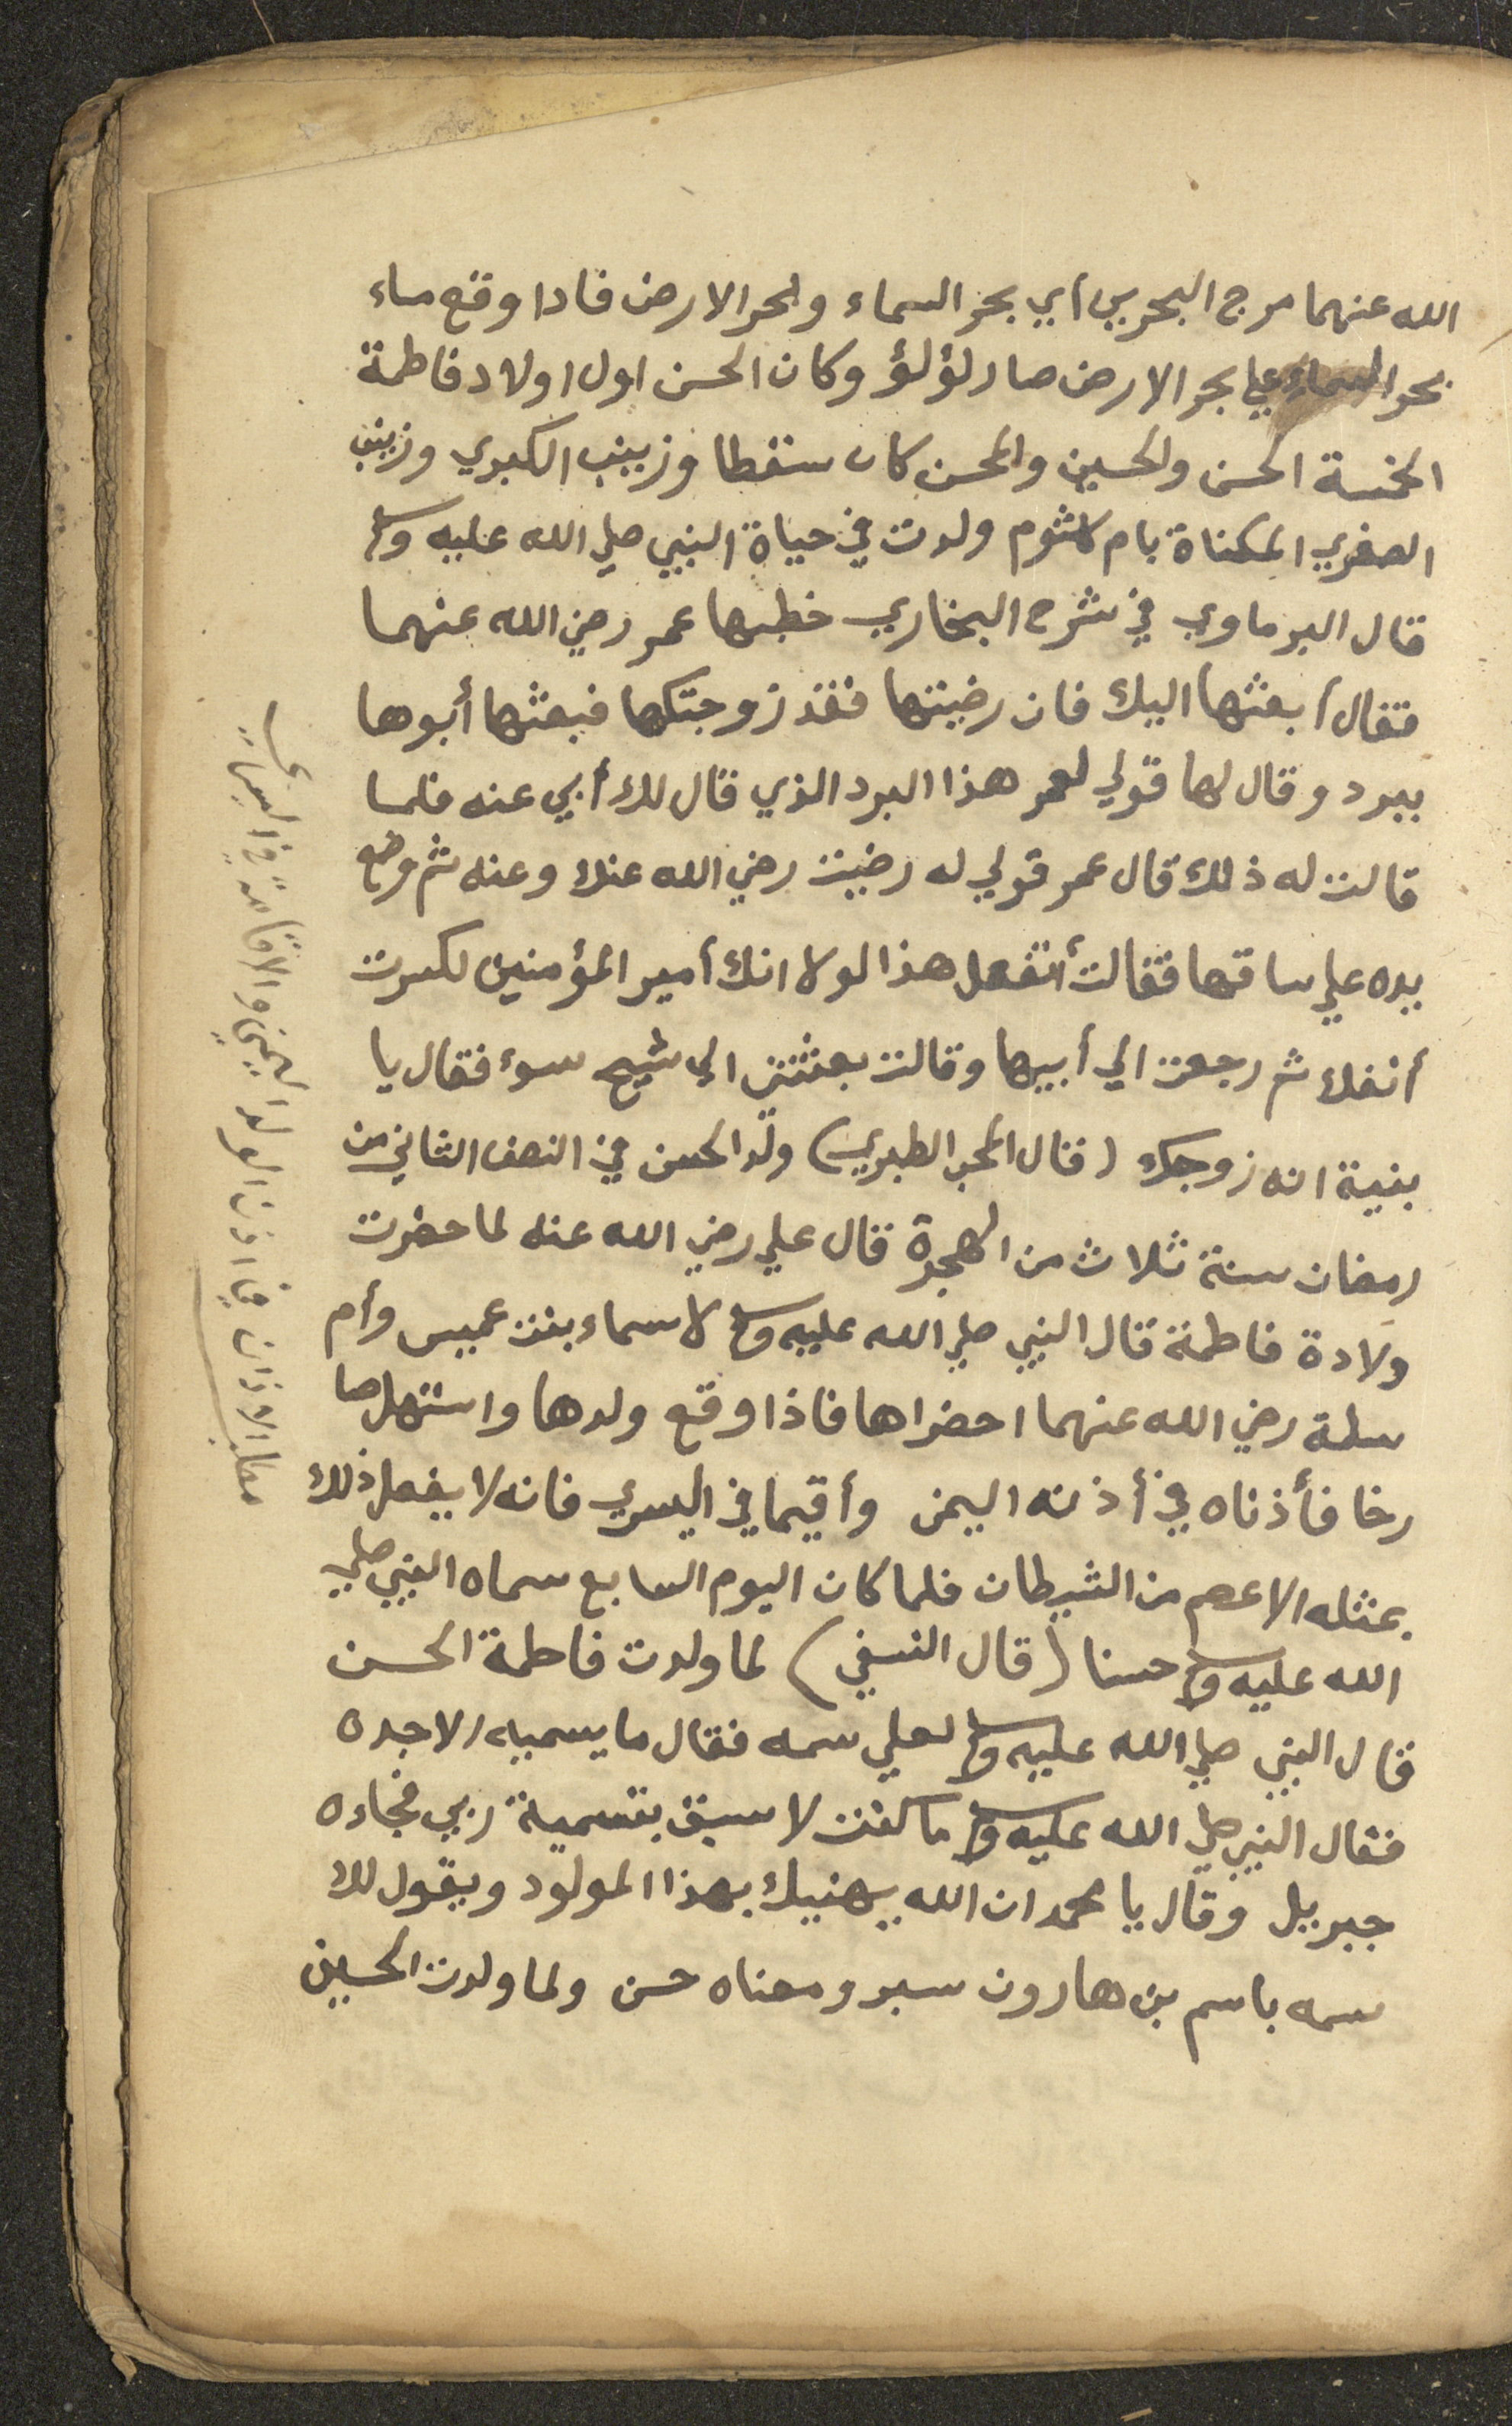 الله عنهما مرج البحرين أي بحر السماء وبحر الارض فاذا وقع ماء
بحر السماء علي بحر الارض صار لؤلؤ وكان الحسن اول اولاد فاطمة
الخمسة الحسن والحسين والمحسن كان سقطا وزينب الكبري وزينب
الصغري المكناة بام كلثوم ولدت في حياة النبي صلي الله عليه وسلم
قال البرماوي في شرح البخاري خطبها عمر رضي الله عنهما
فقال أبعثها اليك فان رضيتها فقد زوجتكها فبعثها أبوها
ببرد وقال لها قولي لعمر هذا البرد الذي قال لك أبي عنه فلما
قالت له ذلك قال عمر قولي له رضيت رضي الله عنك وعنه ثم وضع
يده علي ساقها فقالت أتفعل هذا لولا انك أمير المؤمنين لكسرت
أنفك ثم رجعت الي أبيها وقالت بعثتني الي شيخ سوء فقال يا
بنية انه زوجك (قال المحب الطبري) ولد الحسن في النصف الثاني من
رمضان سنة ثلاث من الهجرة قال علي رضي الله عنه لما حضرت
ولادة فاطمة قال النبي صلي الله عليه وسلم لاسماء بنت عميس وأم
سلمة رضي الله عنهما احضراها فاذا وقع ولدها واستهل صا
رخا فأذناه في أذنه اليمن وأقيما في اليسري فانه لا يفعل ذلك
بمثله الا عصم من الشيطان فلما كان اليوم السابع سماه النبي صلي
الله عليه وسلم حسنا (قال النسفي) لما ولدت فاطمة الحسن
قال النبي صلي الله عليه وسلم لعلي سمه فقال ما يسميه الا جده
فقال النبي صلي الله عليه وسلم ما كنت لا سبق بتسمية ربي فجاءه
جبريل وقال يا محمد ان الله يهنيك بهذا المولود ويقول لك
سمه باسم بن هارون سبر ومعناه حسن ولما ولدت الحسين
مطلب الاذان في اذن الولد اليمني والاقامة في اليسرا